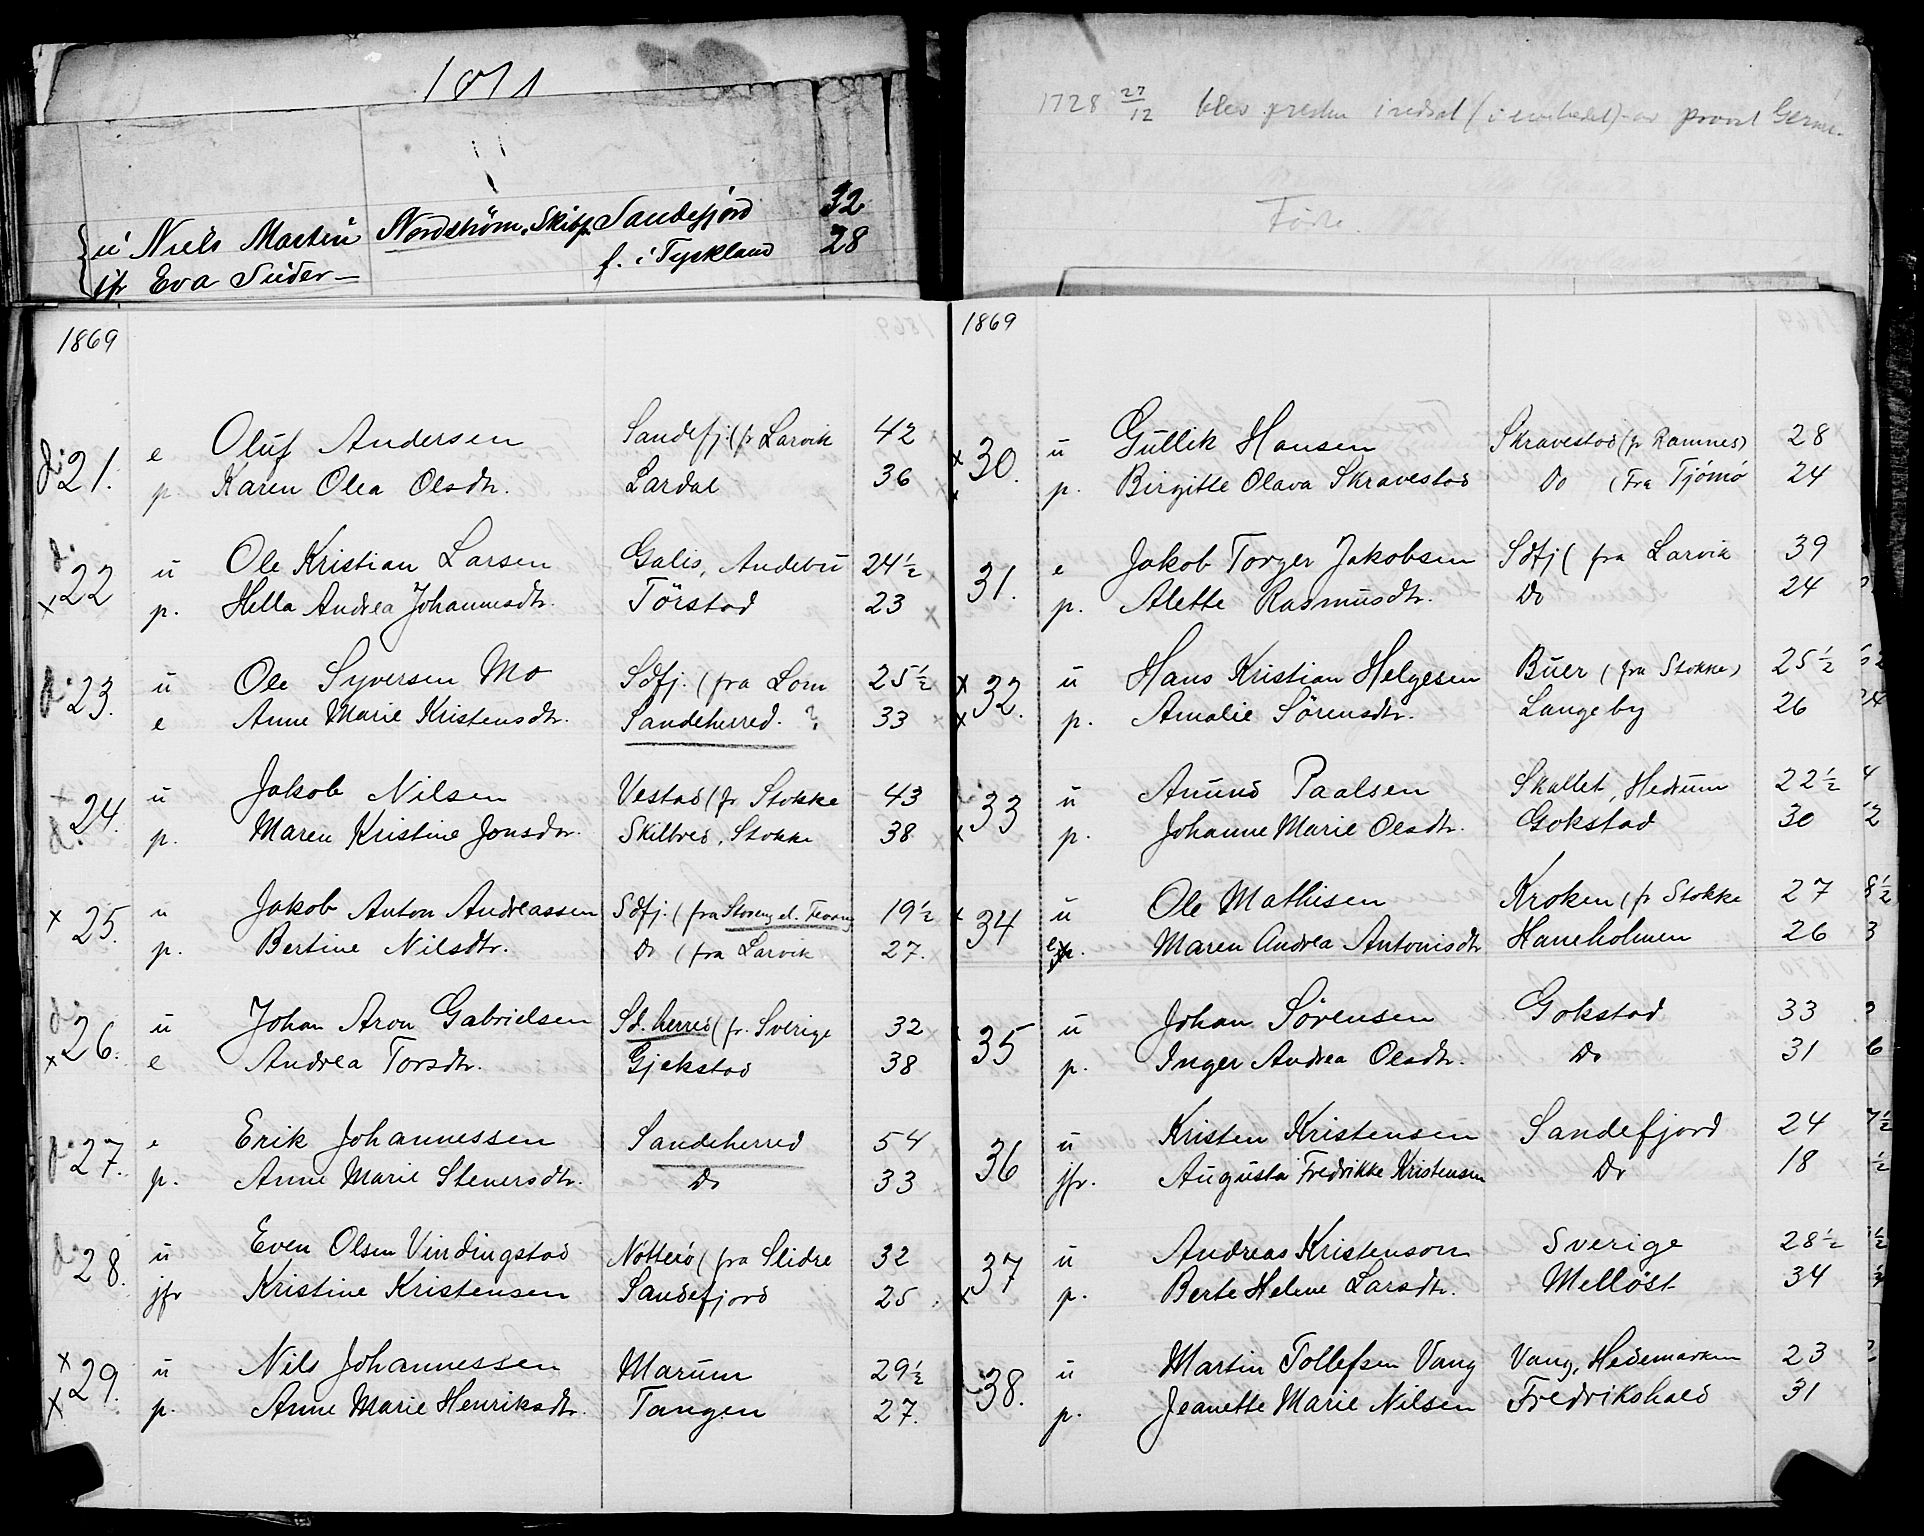 1871
{ u Niels Martin Nordstrøm, Skibsf. Sandefjord 32
jfr Eva Suder— f. i Tyskland 28
1869
d. 21. e Oluf Andersen Sandefj. (fr Larvik 42
p. Karen Olea Olsdtr. Lardal 36
d. 22 u Ole Kristian Larsen Galis, Andebu 24½
x p. Hella Andrea Johannesdtr. Törstad 23
d. 23. u Ole Syversen Mo Sdfj. (fra Lom 25½
e Anne Marie Kristensdtr. Sandeherred. ? 33
24. u Jakob Nilsen Vestad (fr Stokke 43
d. p. Maren Kristine Jonsdtr. Skilbred, Stokke 38
x 25. u Jakob Anton Andreassen Sdfj. (fra Storeng el. 19½
p. Bertine Nilsdtr. Do (fra Larvik 27.
d. 26. u Johan Aron Gabrielsen Sd. herred (fr. Sverige 32
x e Andrea Torsdtr. Gjekstad 38
d. 27. e Erik Johannessen Sandeherred 54
p. Anne Marie Stenersdtr. Do 33
d. 28. u Even Olsen Vindingstad Nötterö (fra Slidre 32
jfr Kristine Kristensen Sandefjord 25
x 29. u Nils Johannessen Marum 29½
x p. Anne Marie Henriksdtr. Tangen 27.
1728 27/12 blev presten i (i embedet) av provst
Födte.
1869
x 30. u Gullik Hansen Skravestad (fr Ramnes) 28
x p. Birgitte Olava Skravestad Do (Fra Tjömö 24
31. e Jakob Torger Jakobsen Sdfj ( fra Larvik 39
p. Alette Rasmusdtr. Do 24
x 32. u Hans Kristian Helgesen Buer (fra Stokke) 25½
x p. Amalie Sörensdtr. Langeby 26
33 u Amund Paalsen Skallet, Hedrum 22½
x p. Johanne Marie Olsdtr. Gokstad 30
x 34 u Ole Mathisen Kroken (fr Stokke 27
e p. Maren Andrea Antonisdtr Haneholmen 26
35 u Johan Sörensen Gokstad 33
p. Inger Andrea Olsdtr. Do 31
36 u Kristen Kristensen Sandefjord 24
jfr. Augusta Fredrikke Kristensen Do 18
37 u Andreas Kristenson Sverige 28½
x p. Berte Helene Larsdtr. Mellöst 34
38. u Martin Tollefsen Vang Vang, Hedemarken 23
p. Jeanette Marie Nilsen Fredrikshald 31